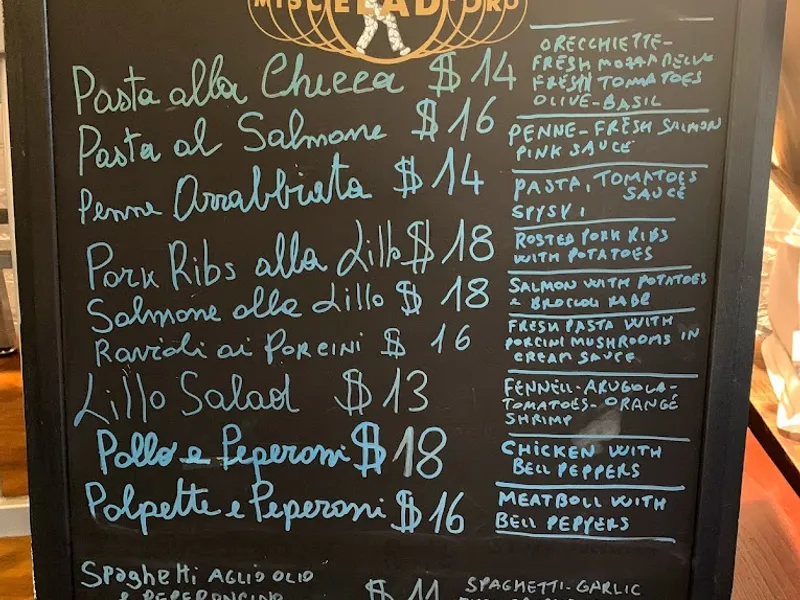 ELAD ORO
Pasta alla Checca $14
ORECCHIETTE-
FRESH MOZARELLA
FRESH TOMATOES
OLIVE-BASIL
Pasta al Salmone $16
PENNE-FRESH SALMON
PINK SAUCE
Penne Arrabbiata $14
PASTA, TOMATOES
SAUCE
SPYSY!
Pork Ribs alla Lillo $18
ROSTED PORK RIBS
WITH POTATOES
Salmone alla Lillo $18
SALMON WITH POTATOES
& BROCCOLI RABE
Ravioli ai PORCINI $16
FRESH PASTA WITH
PORCINI MUSHROOMS IN
CREAM SAUCE
Lillo Salad $13
FENNELL-ARUGOLA-
TOMATOES-ORANGE
SHRIMP
Pollo e Peperoni $18
CHICKEN WITH
BELL PEPPERS
Polpette e Peperoni $16
MEATBOLL WITH
BELL PEPPERS
Spaghetti AGLIO OLIO
e PEPERONCINO $11
SPAGHETTI-GARLIC